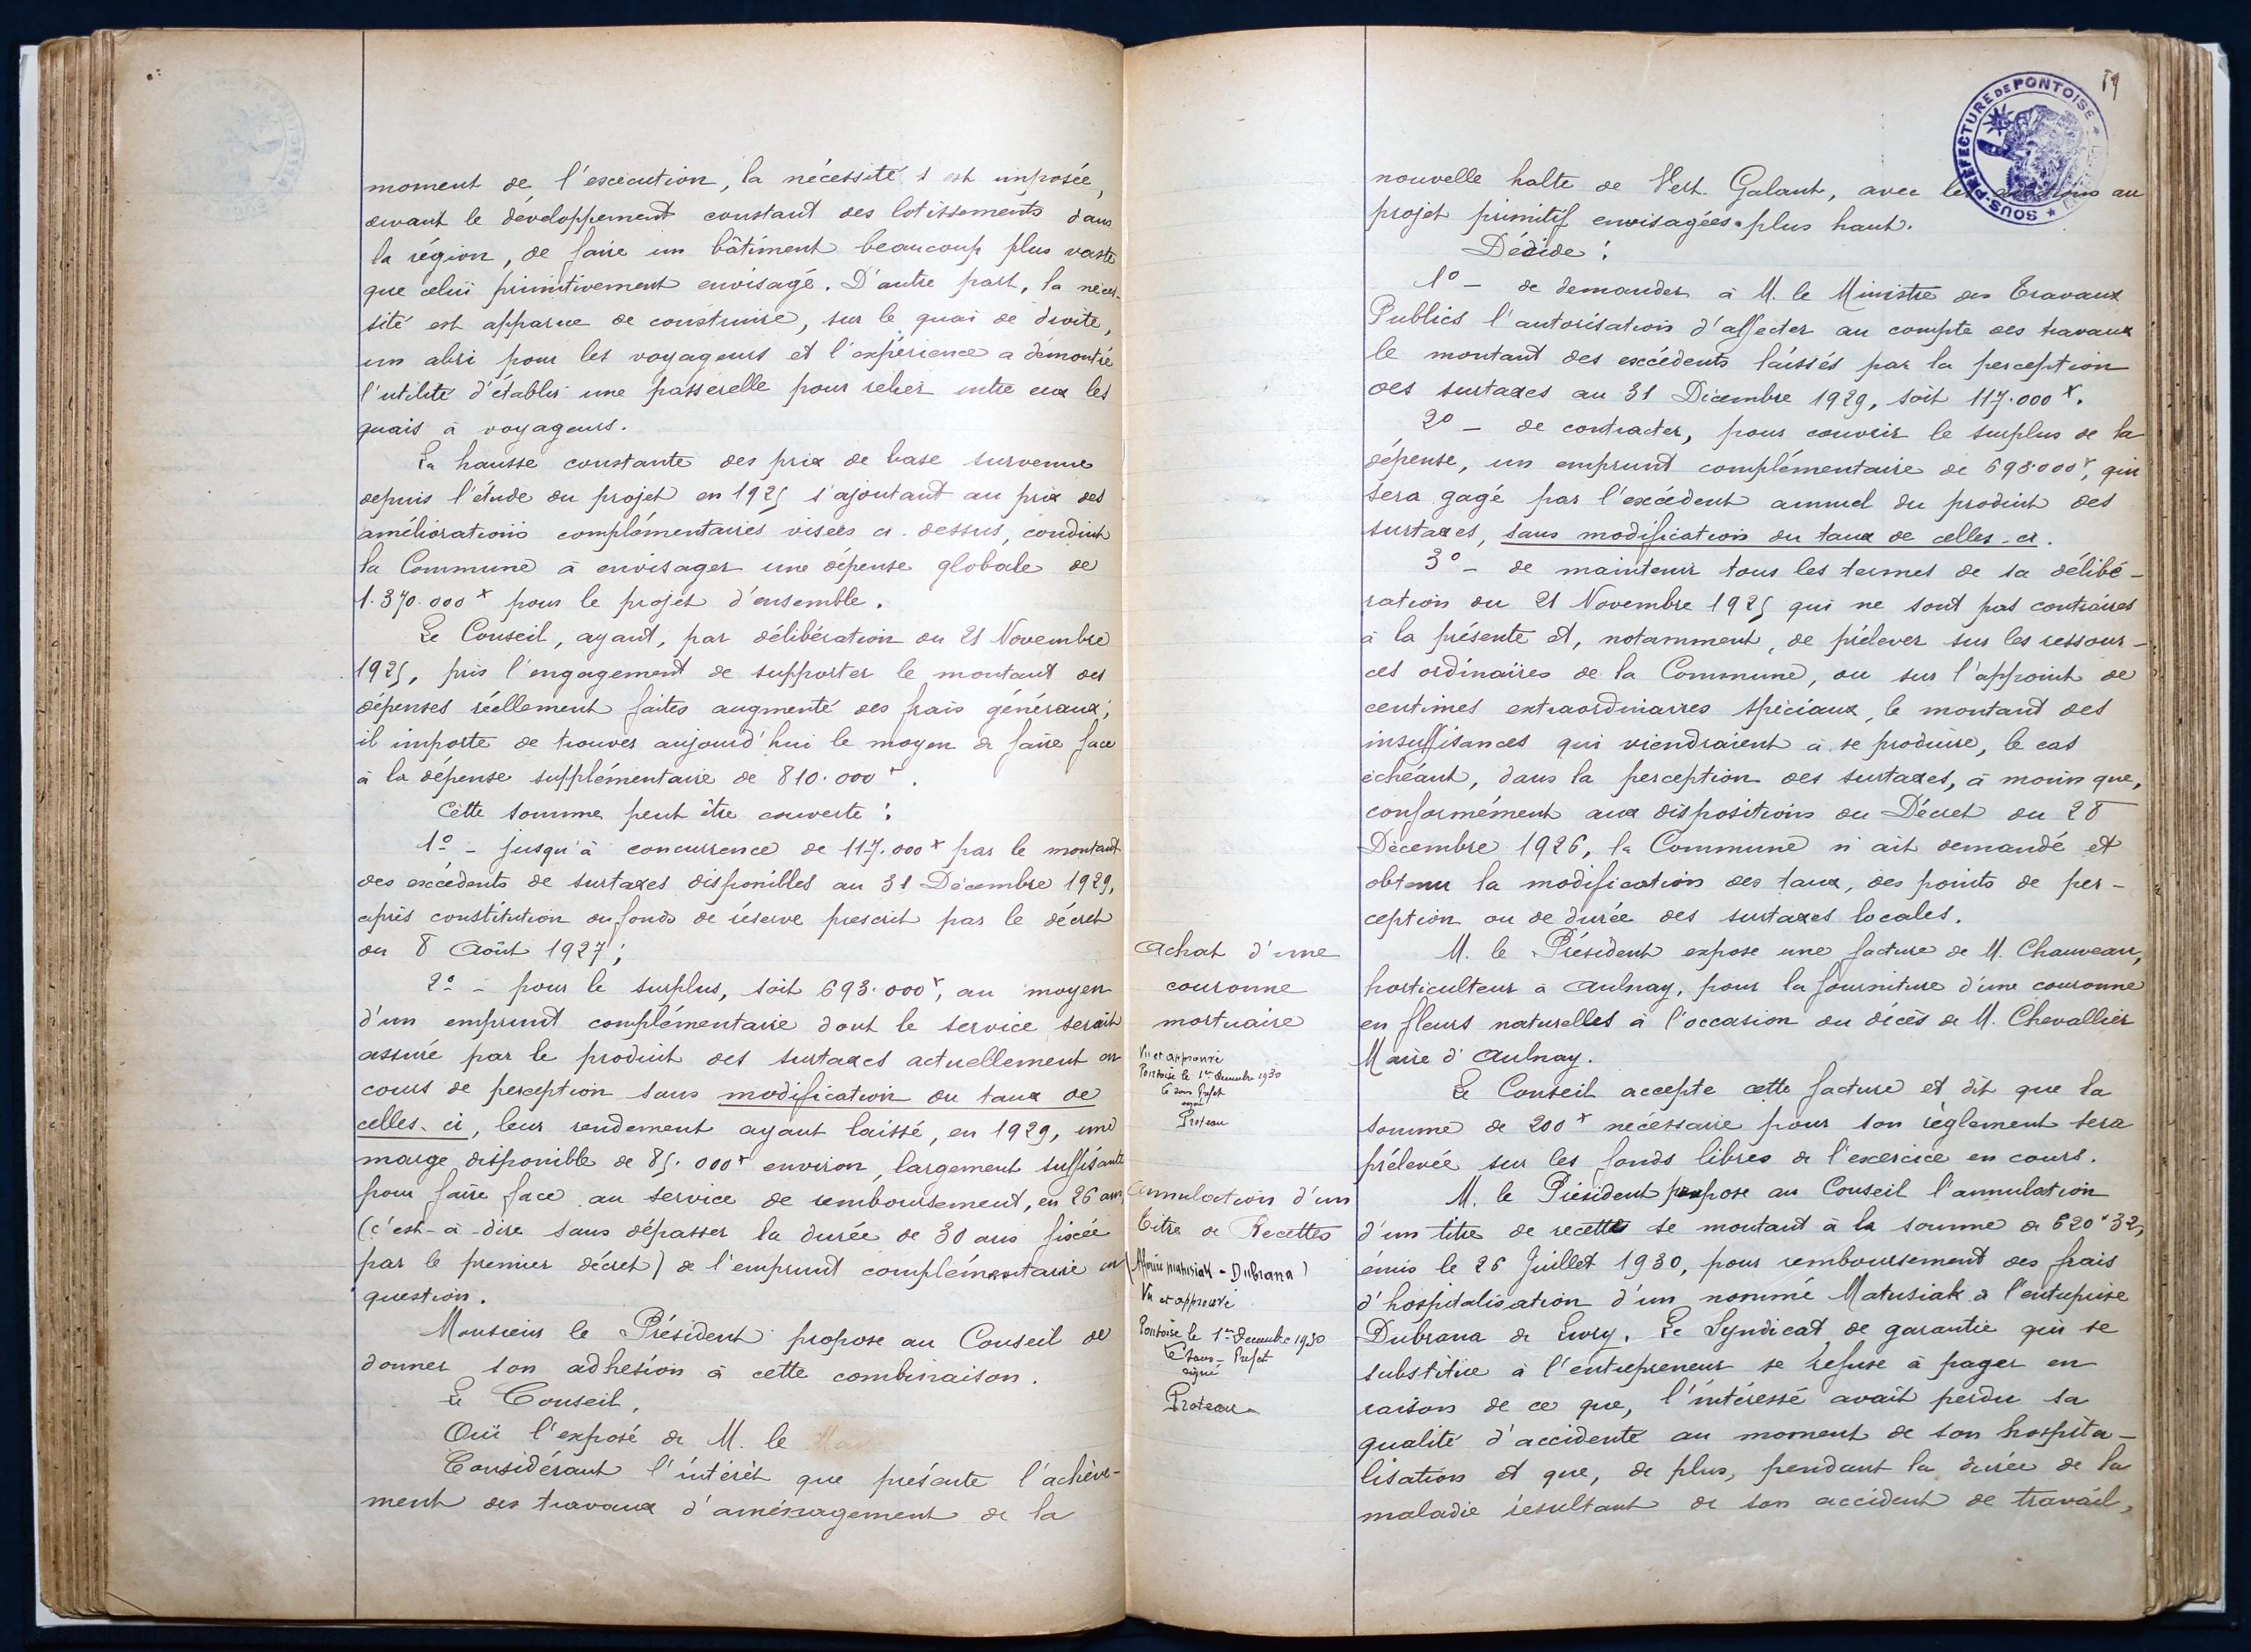 moment de l'exécution, la nécessité s'est imposée,
devant le développement constant des lotissements dans
la région, de faire un bâtiment beaucoup plus vaste
que celui primitivement envisagé. D'autre part, la néces-
sité est apparue de construire, sur le quai de droite,
un abri pour les voyageurs et l'expérience a démontré
l'utilité d'établir une passerelle pour relier entre eux les
quais à voyageurs.
La hausse constante des prix de base survenue
depuis l'étude du projet en 1925 s'ajoutant au prix des
améliorations complémentaires visées ci-dessus, conduit
la Commune à envisager une dépense globale de
1.370.000 f pour le projet d'ensemble.
Le Conseil, ayant, par délibération du 21 Novembre
1925, pris l'engagement de supporter le montant des
dépenses réellement faites augmenté des frais généraux,
il importe de trouver aujourd'hui le moyen de faire face
à la dépense supplémentaire de 810.000 f.
Cette somme peut être couverte :
1º - jusqu'à concurrence de 117.000 f par le montant
des excédents de surtaxes disponibles au 31 Décembre 1929,
après constitution du fonds de réserve prescrit par le décret
du 8 Août 1927;
2º - pour le surplus, soit 693.000 f, au moyen
d'un emprunt complémentaire dont le service serait
assuré par le produit des surtaxes actuellement en
cours de perception sans modification du taux de
celles-ci, leur rendement ayant laissé, en 1929, une
marge disponible de 85.000 f environ, largement suffisante
pour faire face au service de remboursement, en 26 ans
(c'est-à-dire sans dépasser la durée de 30 ans fixée
par le premier décret) de l'emprunt complémentaire en
question.
Monsieur le Président propose au Conseil de
donner son adhésion à cette combinaison.
Le Conseil,
Ouï l'exposé de M. le
Considérant l'intérêt que présente l'achève-
ment des travaux d'aménagement de la
SOUS-PRÉFECTURE DE PONTOISE
nouvelle halte de Vert Galant, avec les au
projet primitif envisagées plus haut.
Décide :
1º - de demander à M. le Ministre des Travaux
Publics l'autorisation d'affecter au compte des travaux
le montant des excédents laissés par la perception
des surtaxes au 31 Décembre 1929, soit 117.000 f.
2º - de contracter, pour couvrir le surplus de la
dépense, un emprunt complémentaire de 693.000 f, qui
sera gagé par l'excédent annuel du produit des
surtaxes, sans modification du taux de celles-ci.
3º - de maintenir tous les termes de sa délibé-
ration du 21 Novembre 1925 qui ne sont pas contraires
à la présente et, notamment, de prélever sur les ressour-
ces ordinaires de la Commune, ou sur l'appoint de
centimes extraordinaires spéciaux, le montant des
insuffisances qui viendraient à se produire, le cas
échéant, dans la perception des surtaxes, à moins que,
conformément aux dispositions du Décret du 28
Décembre 1926, la Commune n'ait demandé et
obtenu la modification des taux, des points de per-
ception ou de durée des surtaxes locales.
Achat d'une
couronne
mortuaire
Vu et approuvé
Pontoise le 1er Décembre 1930
Le Sous Préfet
signé
Proteau
M. le Président expose une facture de M. Chauveau,
horticulteur à Aulnay, pour la fourniture d'une couronne
en fleurs naturelles à l'occasion du décès de M. Chevallier
Maire d'Aulnay.
Le Conseil accepte cette facture et dit que la
somme de 200 f nécessaire pour son règlement sera
prélevée sur les fonds libres de l'exercice en cours.
Annulation d'un
Titre de Recettes
(Affaire Matusiak - Dubrana)
Vu et approuvé
Pontoise le 1er Décembre 1930
Le Sous-Préfet
signé
Proteau
M. le Président propose au Conseil l'annulation
d'un titre de recettes se montant à la somme de 620 f 32,
émis le 26 Juillet 1930, pour remboursement des frais
d'hospitalisation d'un nommé Matusiak à l'entreprise
Dubrana de Livry. Le Syndicat de garantie qui se
substitue à l'entrepreneur se refuse à payer en
raison de ce que, l'intéressé avait perdu sa
qualité d'accidenté au moment de son hospita-
lisation et que, de plus, pendant la durée de la
maladie résultant de son accident de travail,